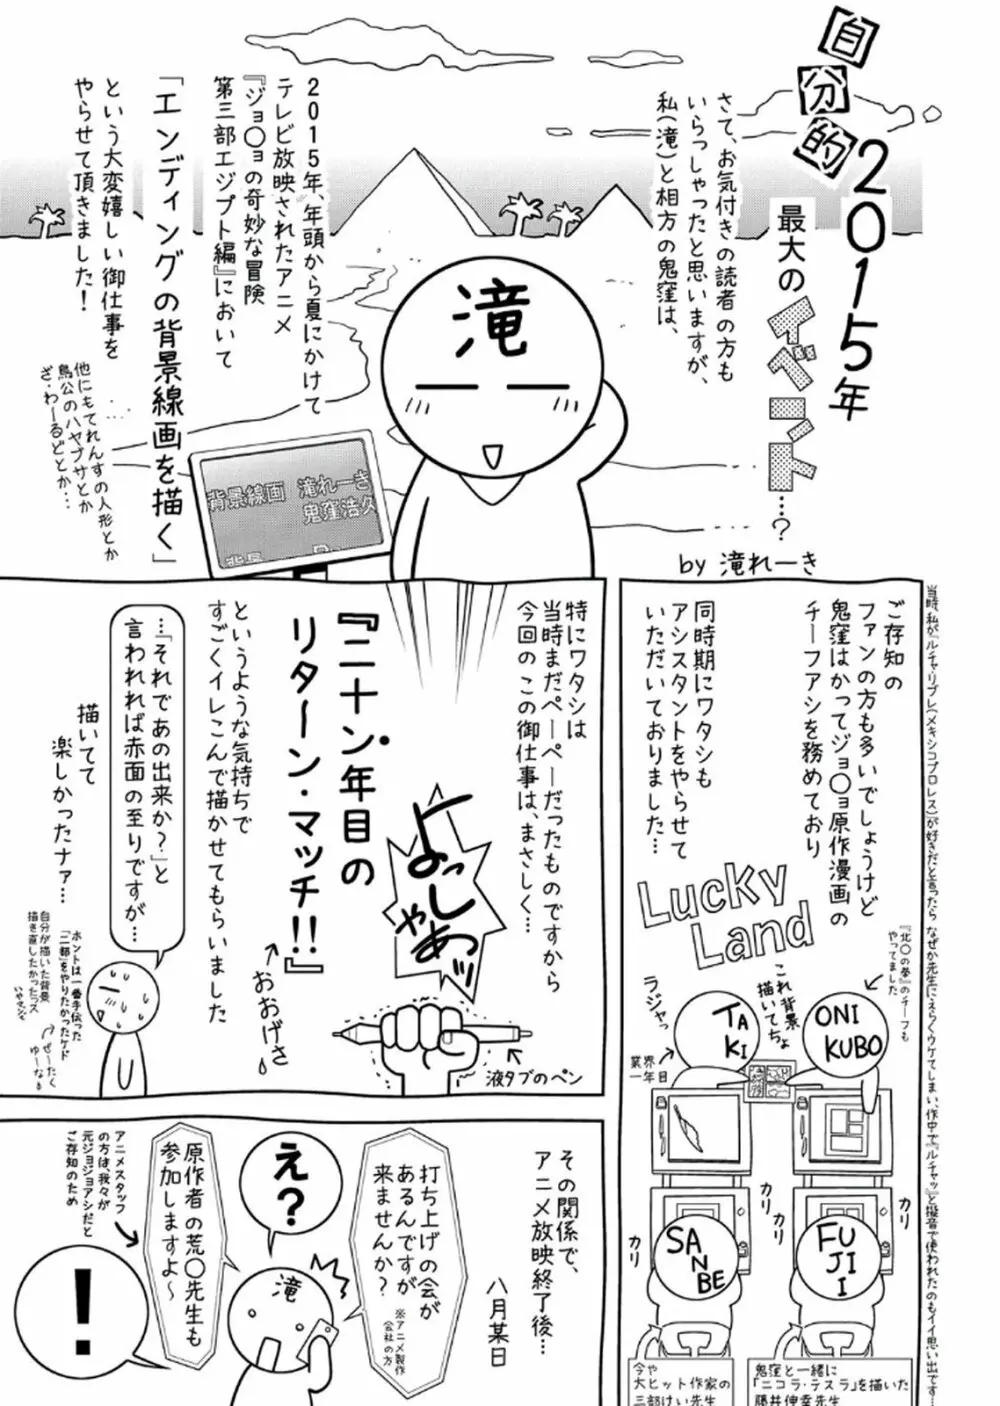 自分的
2015年
最大の
イベント…?
by 滝れーき
さて、お気付きの読者の方も
いらっしゃったと思いますが、
私(滝)と相方の鬼窪は、
2015年、年頭から夏にかけて
テレビ放映されたアニメ
『ジョ〇ョの奇妙な冒険
第三部エジプト編』において
「エンディングの背景線画を描く」
という大変嬉しい御仕事を
やらせて頂きました!
他にもてれんすの人形とか
鳥公のハヤブサとか
ざ・わーるどとか…
滝
背景線画 滝れーき
鬼窪浩久
背景
当時、私が『ルチャ・リブレ(メキシコプロレス)が好きだと言ったら なぜか先生にえらくウケてしまい、作中で『ルチャッ』と擬音で使われたのもイイ思い出です…
ご存知の
ファンの方も多いでしょうけど
鬼窪はかってジョ〇ョ原作漫画の
チーフアシを務めており
同時期にワタシも
アシスタントをやらせて
いただいておりました…
Lucky
Land
『北〇の拳』のチーフも
やってました
これ背景
描いてちょ
ラジャっ
業界
一年目
TAKI
ONI
KUBO
カリ
カリ
カリ
カリ
SANBE
FUJII
鬼窪と一緒に
「ニコラ・テスラ」を描いた
藤井伸幸先生
今や
大ヒット作家の
三部けい先生
特にワタシは
当時まだペーペーだったものですから
今回のこの御仕事は、まさしく…
よっしゃあッ
液タブのペン
『二十ン年目の
リターン・マッチ!!』
おおげさ
というような気持ちで
すごくイレこんで描かせてもらいました
…「それであの出来か?」と
言われれば赤面の至りですが…
描いてて
楽しかったナァ…
ホントは一番手伝った
「二部」をやりたかったケド
ぜーたく
ゆーな
自分が描いた背景
描き直したかったっス
いやマジで
その関係で、
アニメ放映終了後…
八月某日
打ち上げの会が
あるんですが
来ませんか?
※アニメ製作
会社の方
え?
滝
原作者の荒〇先生も
参加しますよ〜
アニメスタッフ
の方は、我々が
元ジョジョアシだと
ご存知のため
!